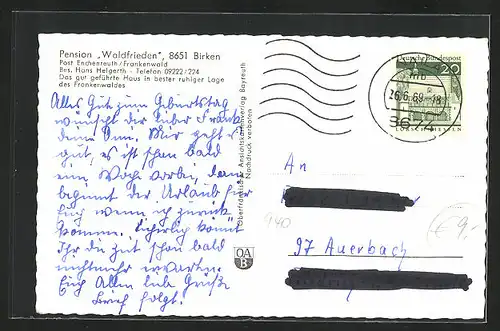 Pension „Waldfrieden", 8651 Birken
Post Enchenreuth/Frankenwald
Bes. Hans Helgerth - Telefon 09222/224
Das gut geführte Haus in bester ruhiger Lage
des Frankenwaldes
Alles Gut zum Geburtstag
wünscht dir lieber Frank
deine Omi. Mir geht es
gut, es ist schon bald
ein Woch vorbei, dann
beginnt der Urlaub für
Euch wenn ich zurück
komme. könnt
Ihr die Zeit schon bald
nichtmehr erwarten.
Euch Allen liebe Grüße
Brief folgt!
Oberfränkischer Ansichtskartenverlag Bayreuth
Nachdruck verboten
OA
B
Deutsche Bundespost
20
LORSCH/HESSEN
26.6.69-18
An
97 Auerbach
940
€ 9,-